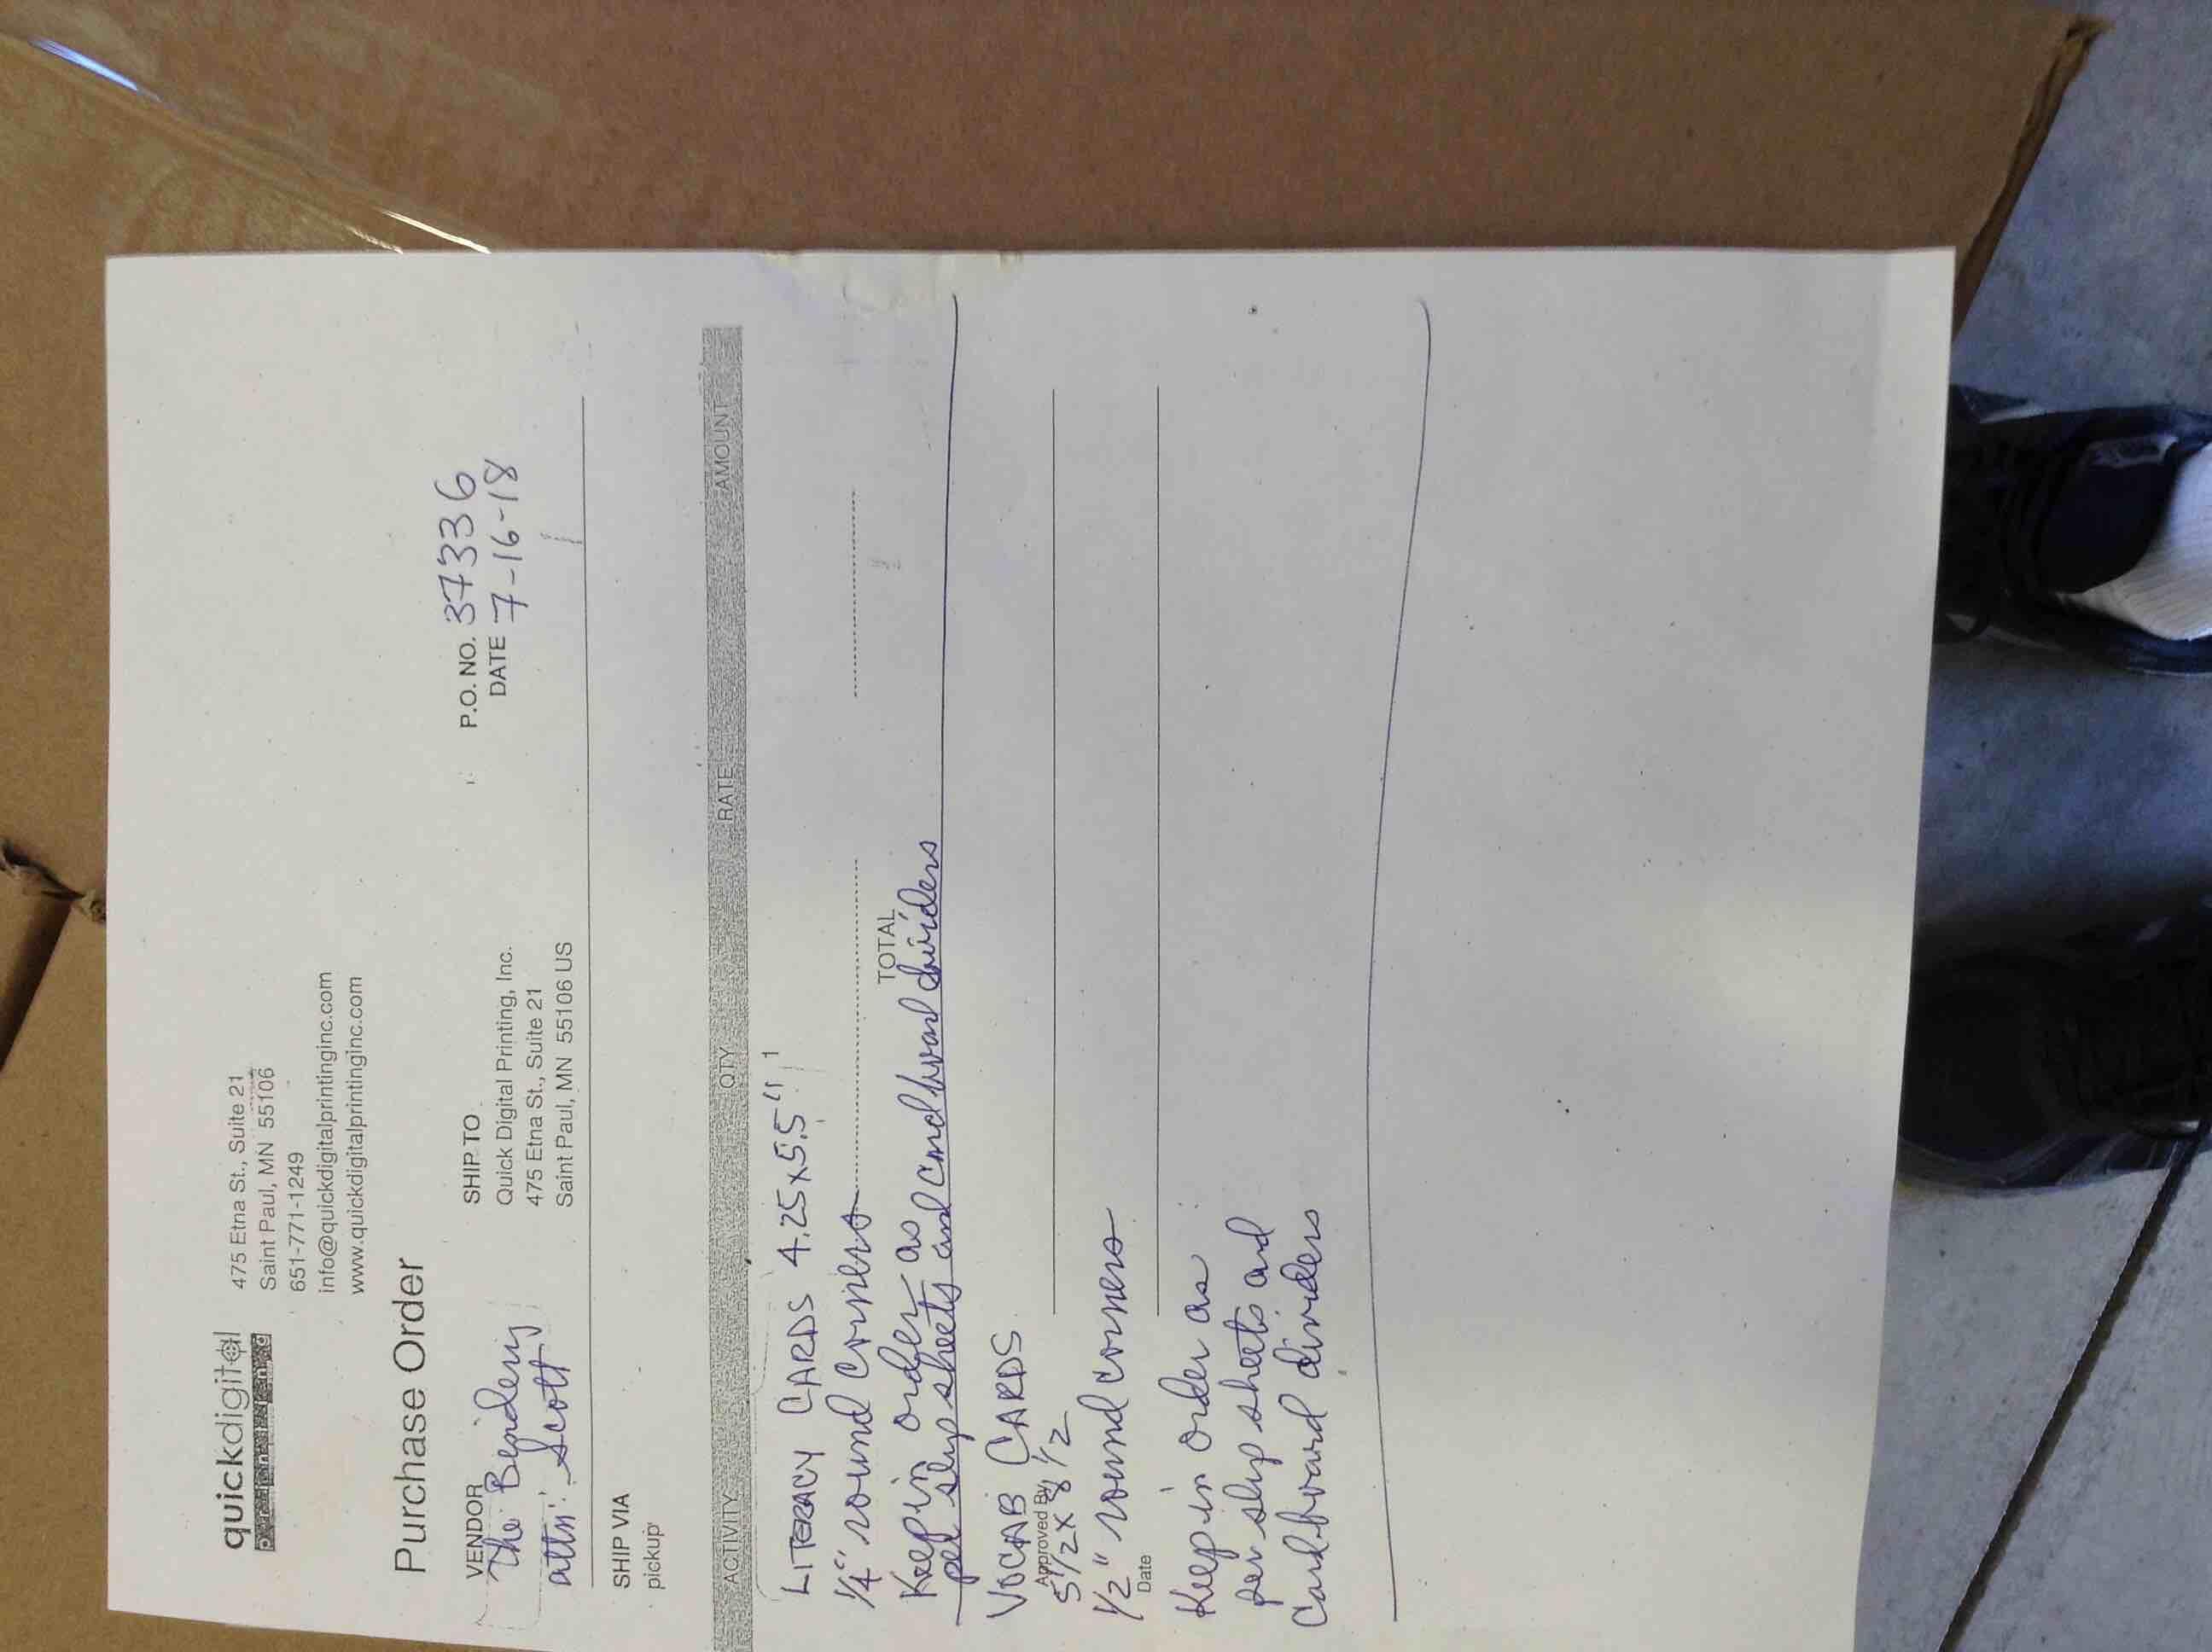 quickdigital
printing
475 Etna St., Suite 21
Saint Paul, MN 55106
651-771-1249
info@quickdigitalprintinginc.com
www.quickdigitalprintinginc.com
Purchase Order
VENDOR
The Bindery
attn: Scott
SHIP TO
Quick Digital Printing, Inc.
475 Etna St., Suite 21
Saint Paul, MN 55106 US
P.O. NO. 37336
DATE 7-16-18
SHIP VIA
pickup
ACTIVITY QTY RATE AMOUNT
LITERACY CARDS 4.25x5.5"
1/4" round corners
TOTAL
Keep in order as
per slip sheets and cardboard dividers
VOCAB CARDS
Approved By
5 1/2 x 8 1/2
1/2" round corners
Date
Keep in order as
per slip sheets and
Cardboard dividers